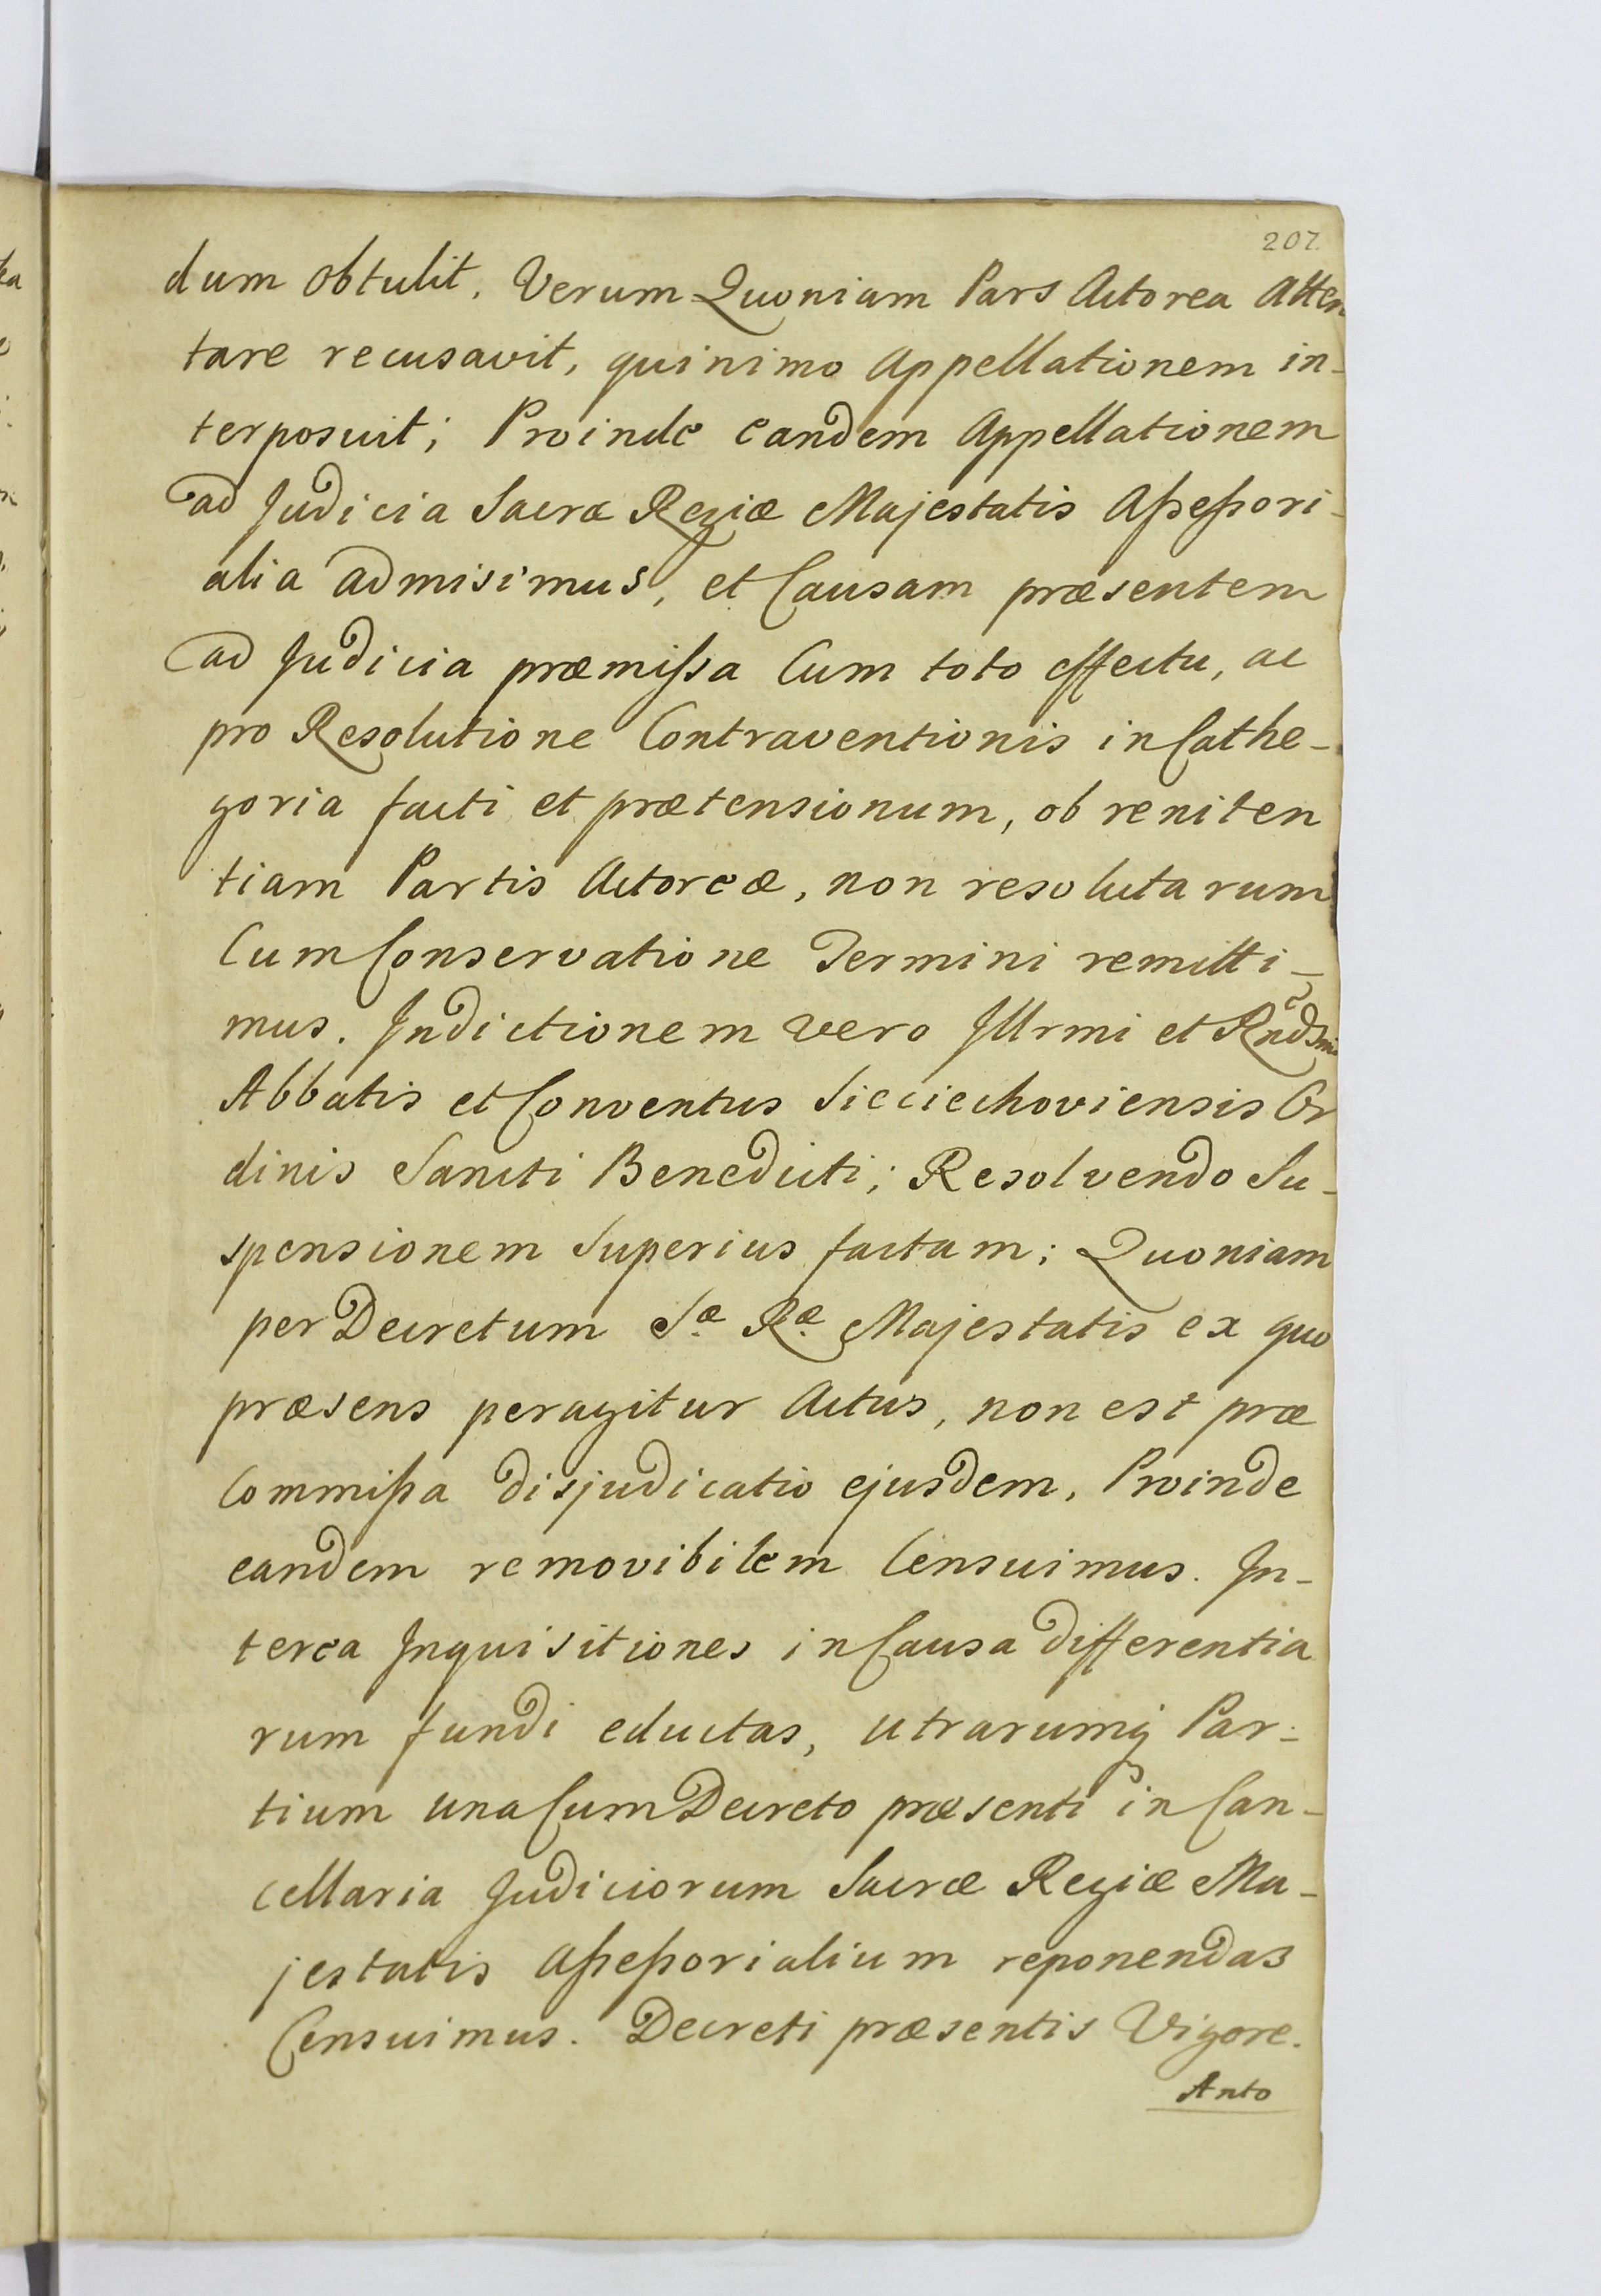 207.
dum obtulit. Verum Quoniam Pars Actorea Atten
tare recusavit, quinimo Appellationem in-
terposuit; Proinde eandem Appellationem
ad Judicia Sacræ Regiæ Majestatis Aßeßori-
alia admisimus, et Causam præsentem
ad Judicia præmißa Cum toto effectu, ac
pro Resolutione Contraventionis in Cathe-
goria facti et prætensionum, ob reniten
tiam Partis Actoreæ, non resolutarum
Cum Conservatione Termini remitti-
mus. Indictionem vero Illrmi et Rndsmi
Abbatis et Conventus Sieciechoviensis Or
dinis Sancti Benedicti; Resolvendo Su-
spensionem Superius factam; Quoniam
per Decretum Sæ Ræ Majestatis ex quo
præsens peragitur Actus, non est præ
Commißa disjudicatio ejusdem, Proinde
eandem removibilem Censuimus. In-
terea Inquisitiones in Causa differentia
rum fundi eductas, utrarumq Par-
tium una Cum Decreto præsenti in Can-
cellaria Judiciorum Sacræ Regiæ Ma-
jestatis Aßeßorialium reponendas
Censuimus. Decreti præsentis Vigore.
Anto